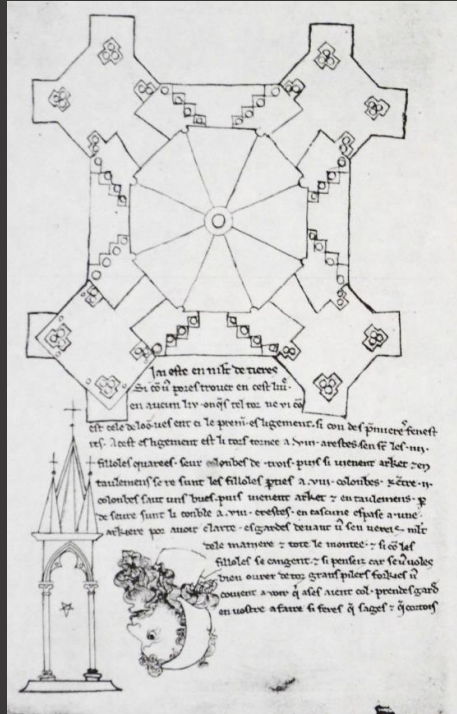 Jai este en mlt de tieres
si cō vˀ pores trover en cest liu'.
en aucun liv. onqs tel tor ne vi cō
est cele de loō. ves ent ci le premi' esligement. si con des p̄miere' fenest
res. A cest esligement est li tors tornee a .viii. arestes. sen sē les .iiii.
filloles quarees. seur colonbes de .trois. puis si vienent arket ⁊ en
taulemens se re sunt les filloles pties a .viii. colonbes. ⁊ ētre .ii.
colonbes saut uns bues. puis vienent arket ⁊ entaulemens. p
de seure sunt li conble a .viii. crestes. en cascune espase a .une.
arkiere por avoir clarte. esgardes devant vˀ sen veres. mlt
dele maniere ⁊ tote le montee. ⁊ si cō les
filloles se cangent. ⁊ si penseiz car se vˀ voles
bien ovrer de toz grans pilers forkies vˀ
covient avoir q̄ ases aient col. prendes gard
en vostre afaire si feres q̄ sages ⁊ q̄ cortois